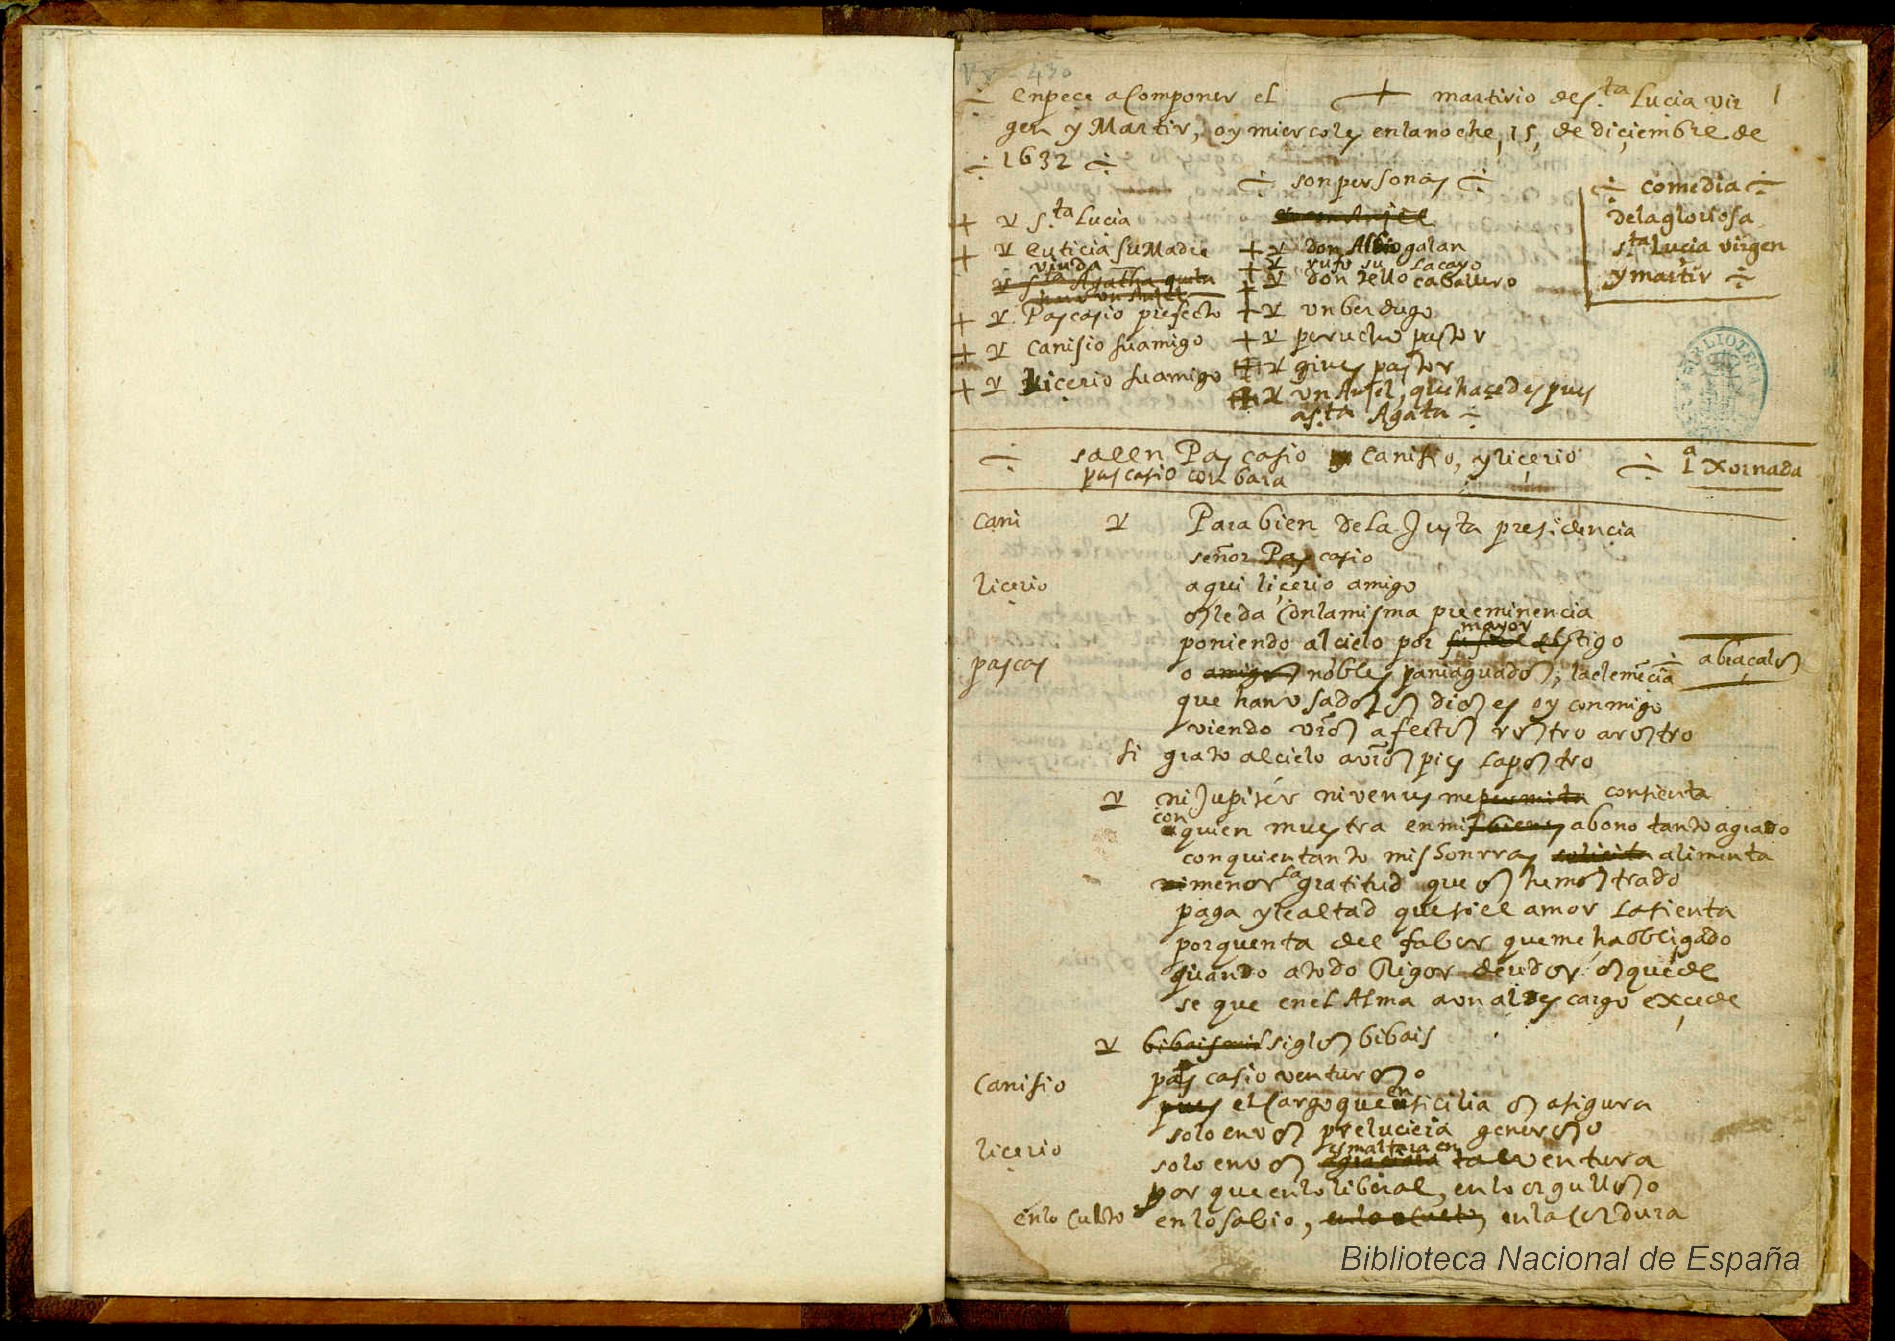 Vª - 430
enpece a Componer el + martirio de s.ta Lucia vir 1
gen y Martir, oy miercoles en la noche, 15, de diçiembre de
1632
son personas
comedia
de la gloriosa
s.ta Lucia virgen
y martir
s.ta Lucia
euticia su Madre
viuda
s.ta Agatha
Pascasio prefecto
canisio su amigo
liçerio su amigo
don Albio galan
rufo su lacayo
don tello caballero
un berdugo
perucho pastor
gines pastor
un Anjel, que haçe despues
a s.ta Agata
salen Pascasio canisio, y liçerio
pascasio con bara
1ª xornada
cani Parabien de la Justa presidencia
señor Pascasio
liçerio aqui liçerio amigo
os le da con la misma preeminencia
mayor
poniendo al cielo por testigo
pascas o amigos nobles paniaguados, la clemēcia abraçalos
que han usado los dioses oy conmigo
viendo vrōs afectos rostro a rostro
si grato al cielo a vrōs pies la postro
ni Jupiter ni venus me permita consienta
con
quien muestra en mis bienes abono tanto agrado
con quien tanto mis honrras solicita alimenta
ni menor la gratitud que os he mostrado
paga y lealtad que si el amor la sienta
por quenta del fabor que me ha obligado
quando a todo Rigor deudor os quede
se que en el Alma aun al descargo exçede
bibais mil siglos bibais
Canisio pascasio venturoso
pues el cargo que en sicilia os asigura
solo en vos preluciera generoso
esmaltara en
liçerio solo en vos tal ventura
por que en lo liberal, en lo orgulloso
en lo culto en lo sabio, en lo oculto, en la cordura
BIBLIOTECA
Biblioteca Nacional de España